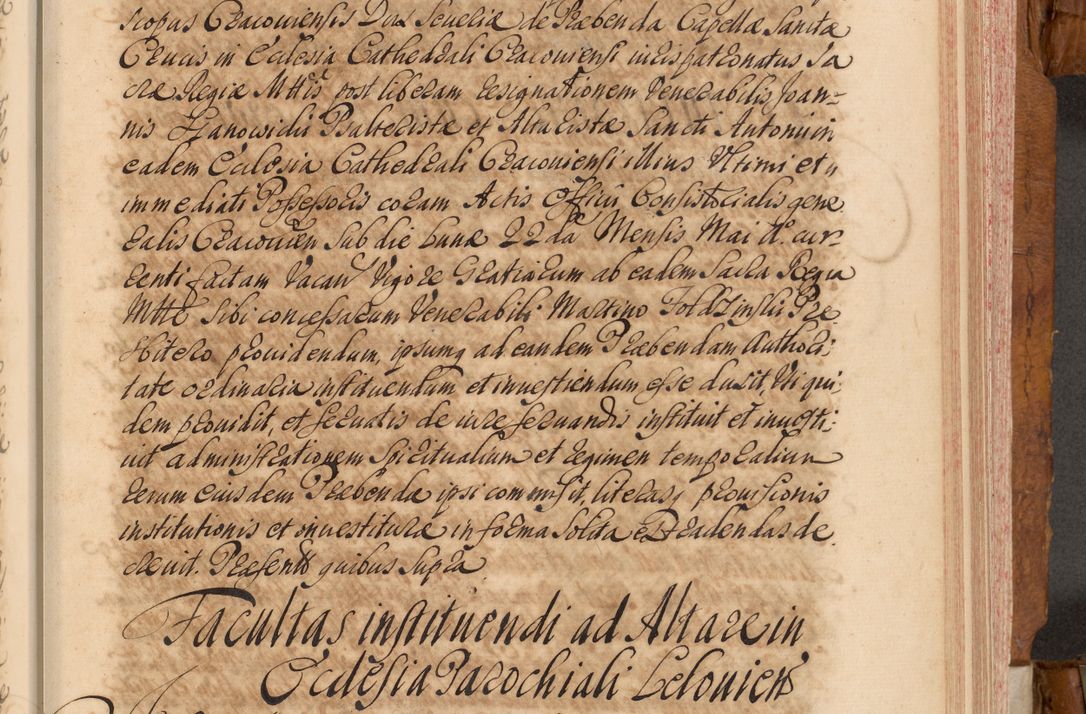 scopus Cracoviensis Dux Severiæ de Præbenda Capellæ Sanctæ
Crucis in Ecclesia Cathedrali Cracoviensi iuris patronatus Sa
cræ Regiæ Mttis post liberam resignationem Venerabilis Joan-
nis Psalteristæ et Altaristæ Sancti Antonii in
eadem Ecclesia Cathedrali Cracoviensi illius Vltimi et
immediati Possessoris coram Actis Officii Consistorialis gene
ralis Cracovien sub die Lunæ 22da Mensis Maii ao. cur-
renti factam Vacan Vigore Gratiarum ab eadem Sacra Regia
Mtte Sibi concessarum Venerabili Martino Præ
sbitero providendum, ipsumq ad eandem Præbendam Authori-
tate ordinaria instituendum et investiendum esse duxit, Vti qui-
dem providit, et servatis de iure servandis instituit et investi-
vit administrationem Spiritualium et regimen temporalium
rerum eiusdem Præbendæ ipsi commisit, literasq provisionis
institutionis et investituræ in forma solita extradendas de
crevit. Præsentib quibus supra
Facultas instituendi ad Altare in
Ecclesia Parochiali Leloviens